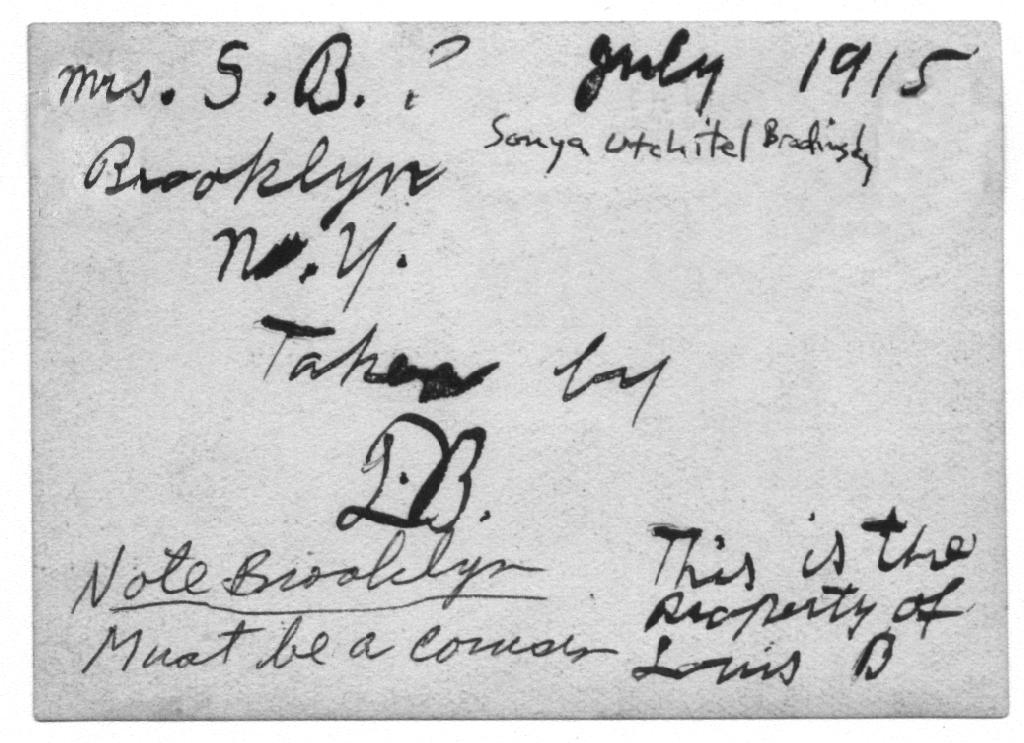 Mrs. S. B. ? July 1915
Sonya Utchitel Bradinsky
Brooklyn
N.Y.
Taken by
D.B.
Note Brooklyn
Must be a
This is the
property of
Louis B